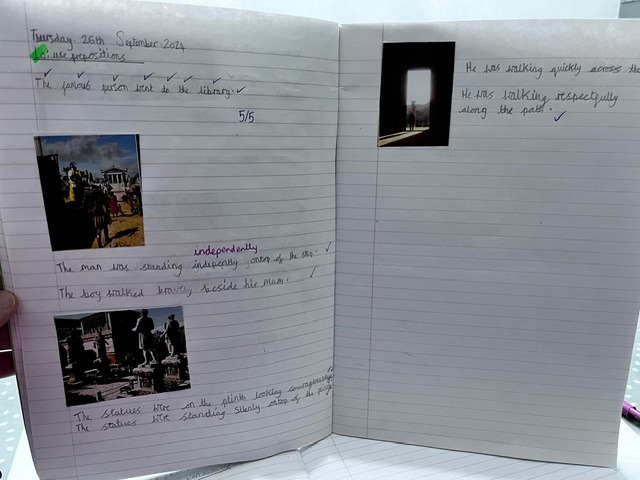 Thursday 26th September 2024
use prepositions
The famous person went to the library.
5/5
independently
The man was standing indepently ontop of the
The boy walked bravely beside his mum.
The statues were on the plinth looking courageously
The statues were standing silently ontop of the plinth
He was walking quickly across the
He was walking respectfully
along the path.